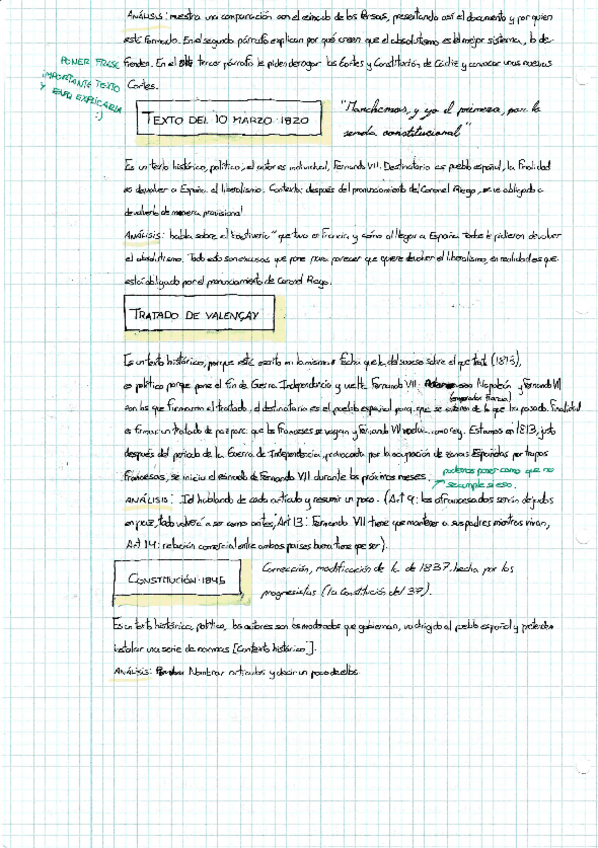 ANÁLISIS: muestra una comparación con el reinado de los Persas, presentando así el documento y por quien
está formado. En el segundo párrafo explican por qué creen que el absolutismo es el mejor sistema, lo de-
fienden. En el tercer párrafo le piden derogar las Cortes y Constitución de Cádiz y convocar unas nuevas
Cortes.
PONER FRASE
IMPORTANTE TEXTO
Y EXPLICARLA
:)
TEXTO DEL 10 MARZO·1820
"Marchemos, y yo el primero, por la
senda constitucional"
Es un texto histórico, político, el autor es individual, Fernando VII. Destinatario es pueblo español, la finalidad
es devolver a España el liberalismo. Contexto: después del pronunciamiento del Coronel Riego, se ve obligado a
devolverlo de manera provisional
ANÁLISIS: habla sobre el "cautiverio" que tuvo en Francia y cómo al llegar a España todos le pidieron devolver
el absolutismo. Todo esto son excusas que pone para parecer que quiere devolver el liberalismo, en realidad es que
está obligado por el pronunciamiento de Coronel Riego.
TRATADO DE VALENÇAY
Es un texto histórico, porque está escrito en la misma fecha que la del suceso sobre el que trata (1813),
es político porque pone el fin de Guerra Independencia y vuelta Fernando VII. Napoleón y Fernando VII
(emperador Francia)
son los que firmaron el tratado, el destinatario es el pueblo español para que se enteren de lo que ha pasado. Finalidad
es firmar un tratado de paz para que los franceses se vayan y Fernando VII vuelva como rey. Estamos en 1813, justo
después del periodo de la Guerra de Independencia, provocada por la ocupación de zonas Españolas por tropas
francesas, se inicia el reinado de Fernando VII durante los próximos meses.
podemos poner como que no
se cumple si eso.
ANÁLISIS: Id hablando de cada artículo y resumir un poco. (Art 9: los afrancesados serán dejados
en paz, todo volverá a ser como antes, Art 13: Fernando VII tiene que mantener a sus padres mientras vivan,
Art 14: relación comercial entre ambos países buena tiene que ser).
CONSTITUCIÓN·1845
Corrección, modificación de la de 1837 hecha por los
progresistas (la Constitución del 37).
Es un texto histórico, político, los autores son los moderados que gobiernan, va dirigido al pueblo español y pretende
instalar una serie de normas [Contexto histórico].
ANÁLISIS: Nombrar artículos y decir un poco de ellos